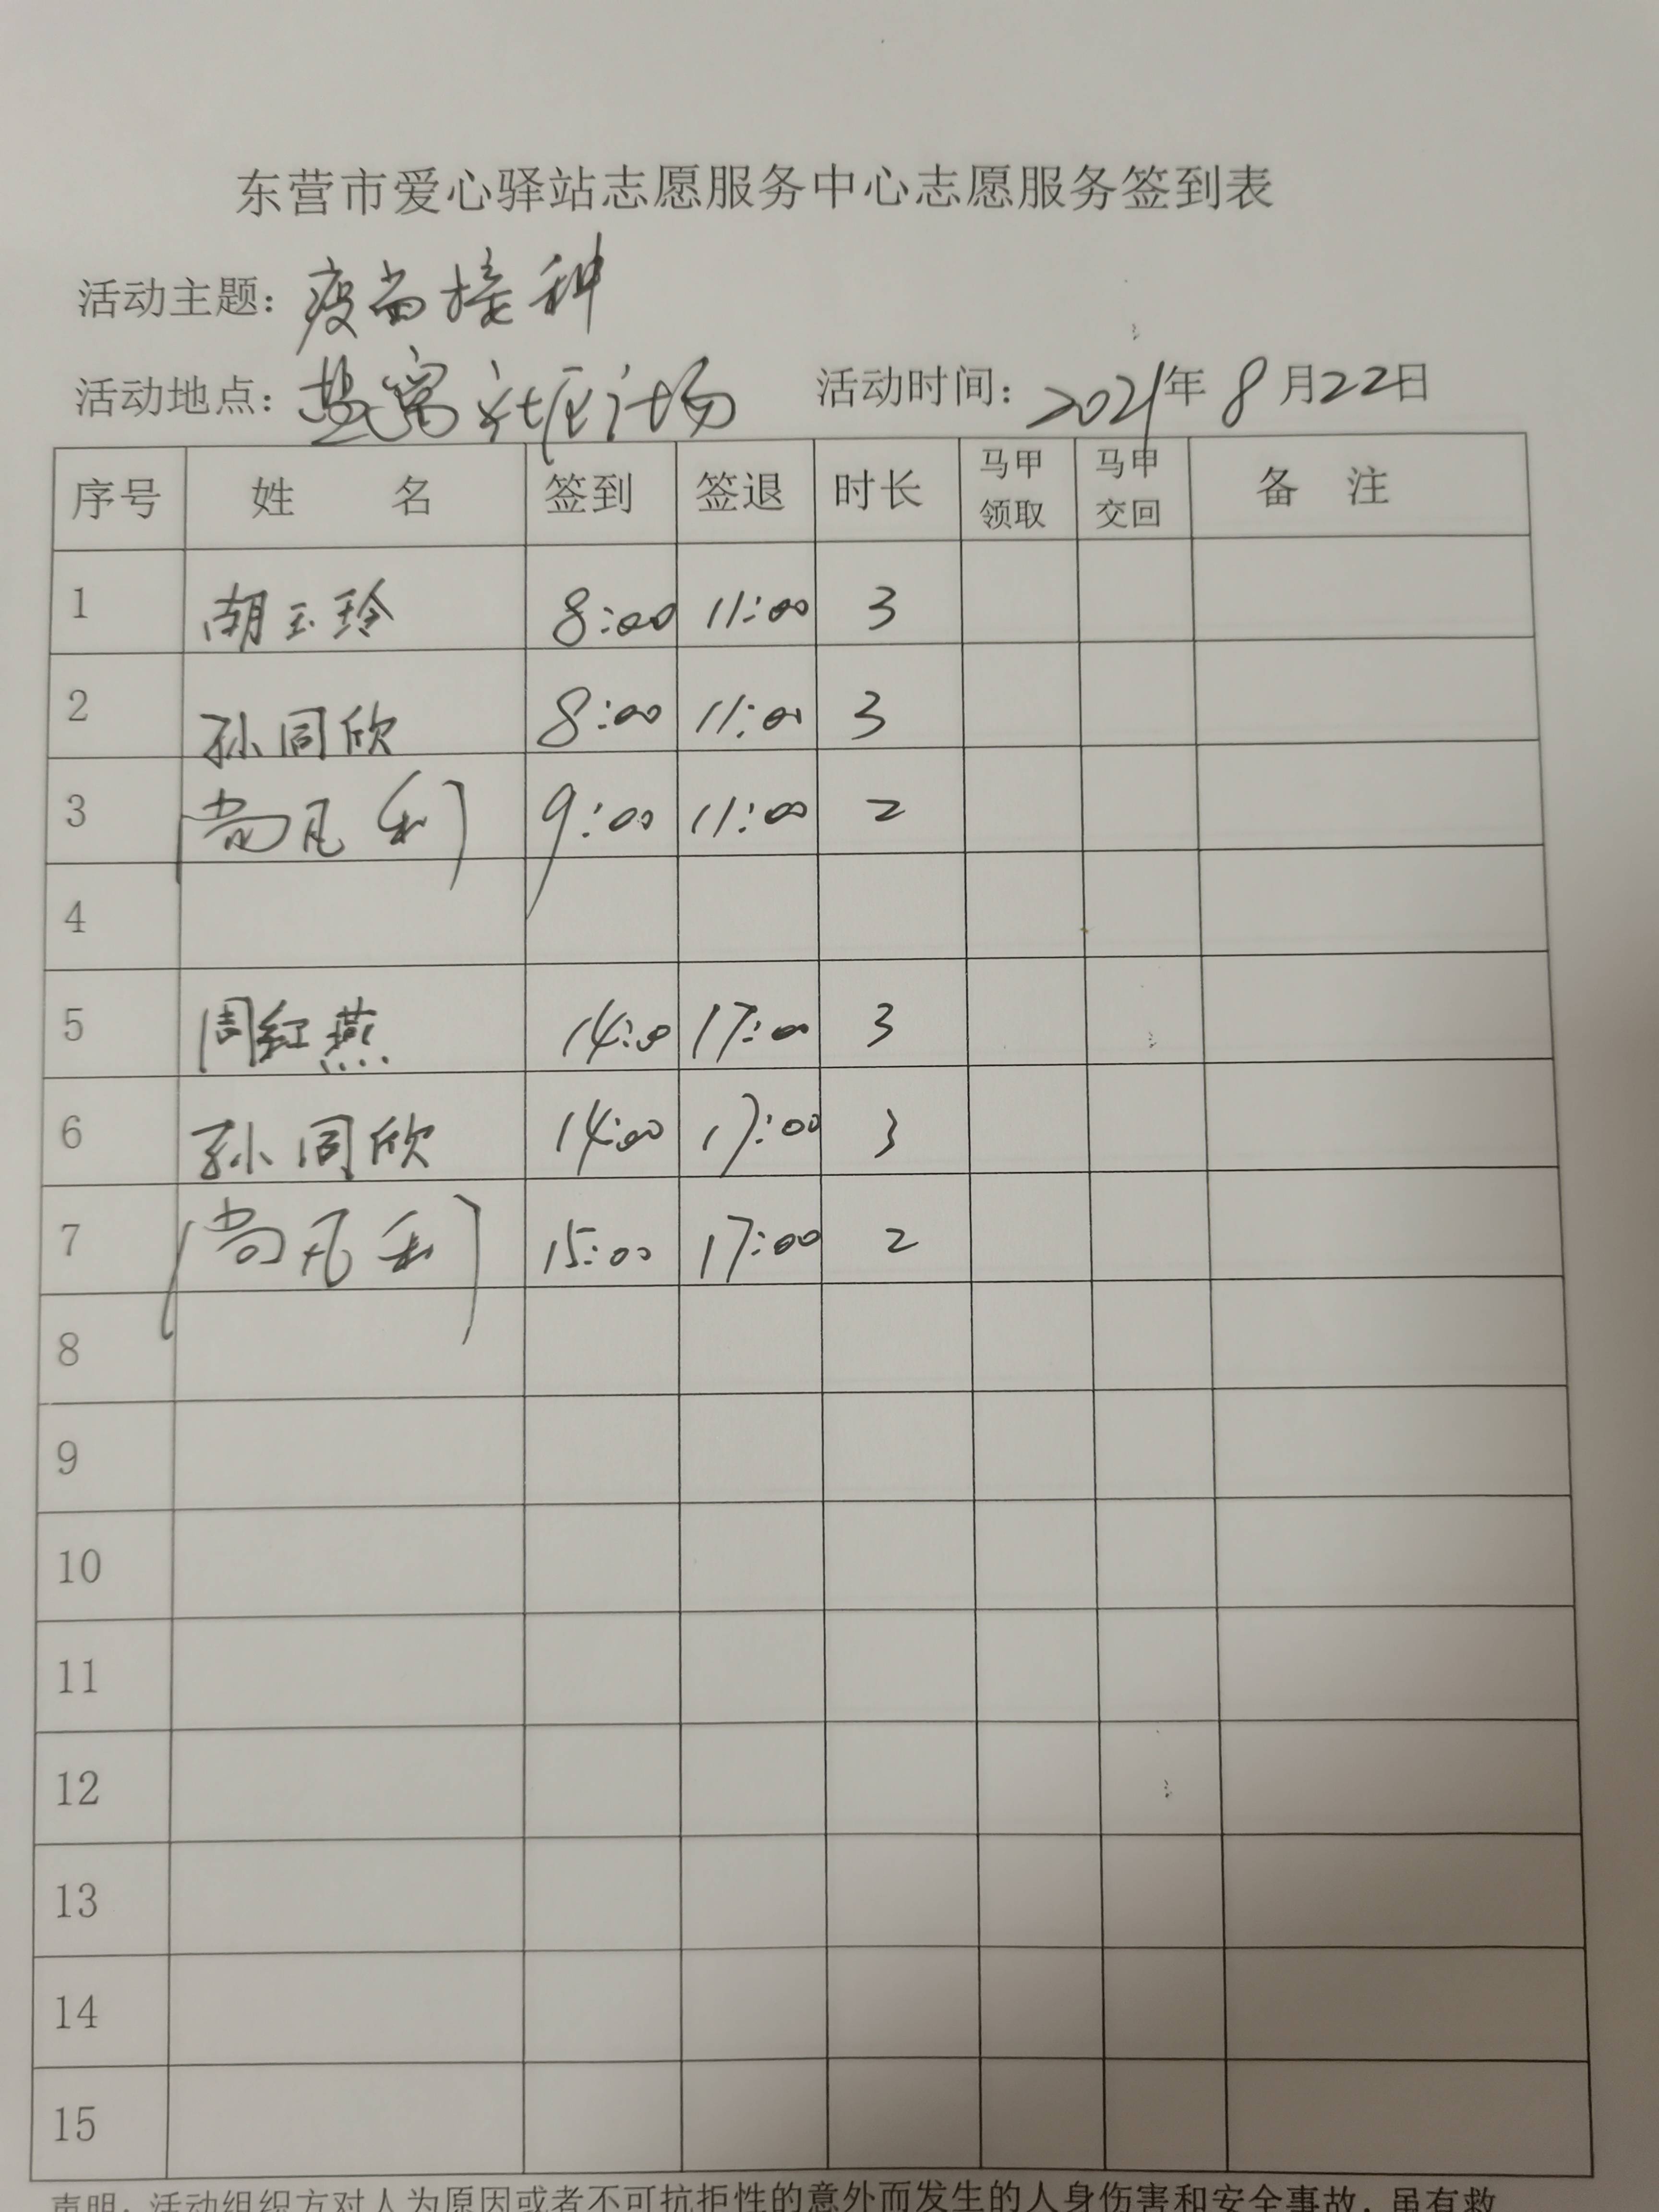 东营市爱心驿站志愿服务中心志愿服务签到表
活动主题：疫苗接种
活动地点：盐窝 广场 活动时间：2021年8月22日
序号 姓 名 签到 签退 时长 马甲领取 马甲交回 备 注
1 胡玉玲 8:00 11:00 3
2 孙同欣 8:00 11:00 3
3 尚凡利 9:00 11:00 2
4
5 周红燕 14:00 17:00 3
6 孙同欣 14:00 17:00 3
7 尚凡利 15:00 17:00 2
8
9
10
11
12
13
14
15
声明：活动组织方对人为原因或者不可抗拒性的意外而发生的人身伤害和安全事故，虽有救